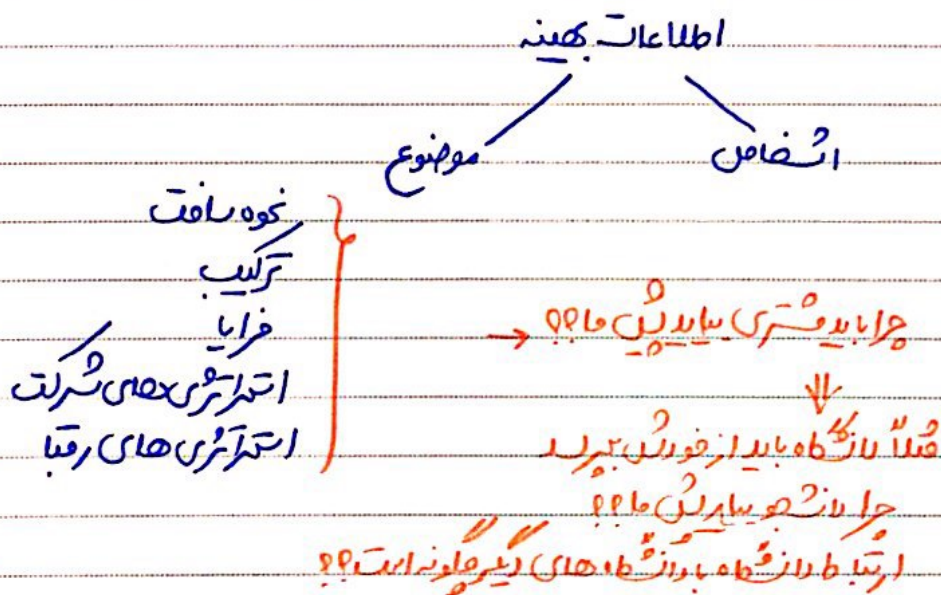 اطلاعات بهینه
اشخاص
موضوع
نحوه ساخت
ترکیب
مزایا
استراتژی های شرکت
استراتژی های رقبا
چرا باید مشتری بیاید پیش ما؟؟
مثلاً دانشگاه باید از خودش بپرسد
چرا دانشجو بیاید پیش ما؟؟
ارتباط دانشگاه با دانشگاه های دیگر چگونه است؟؟